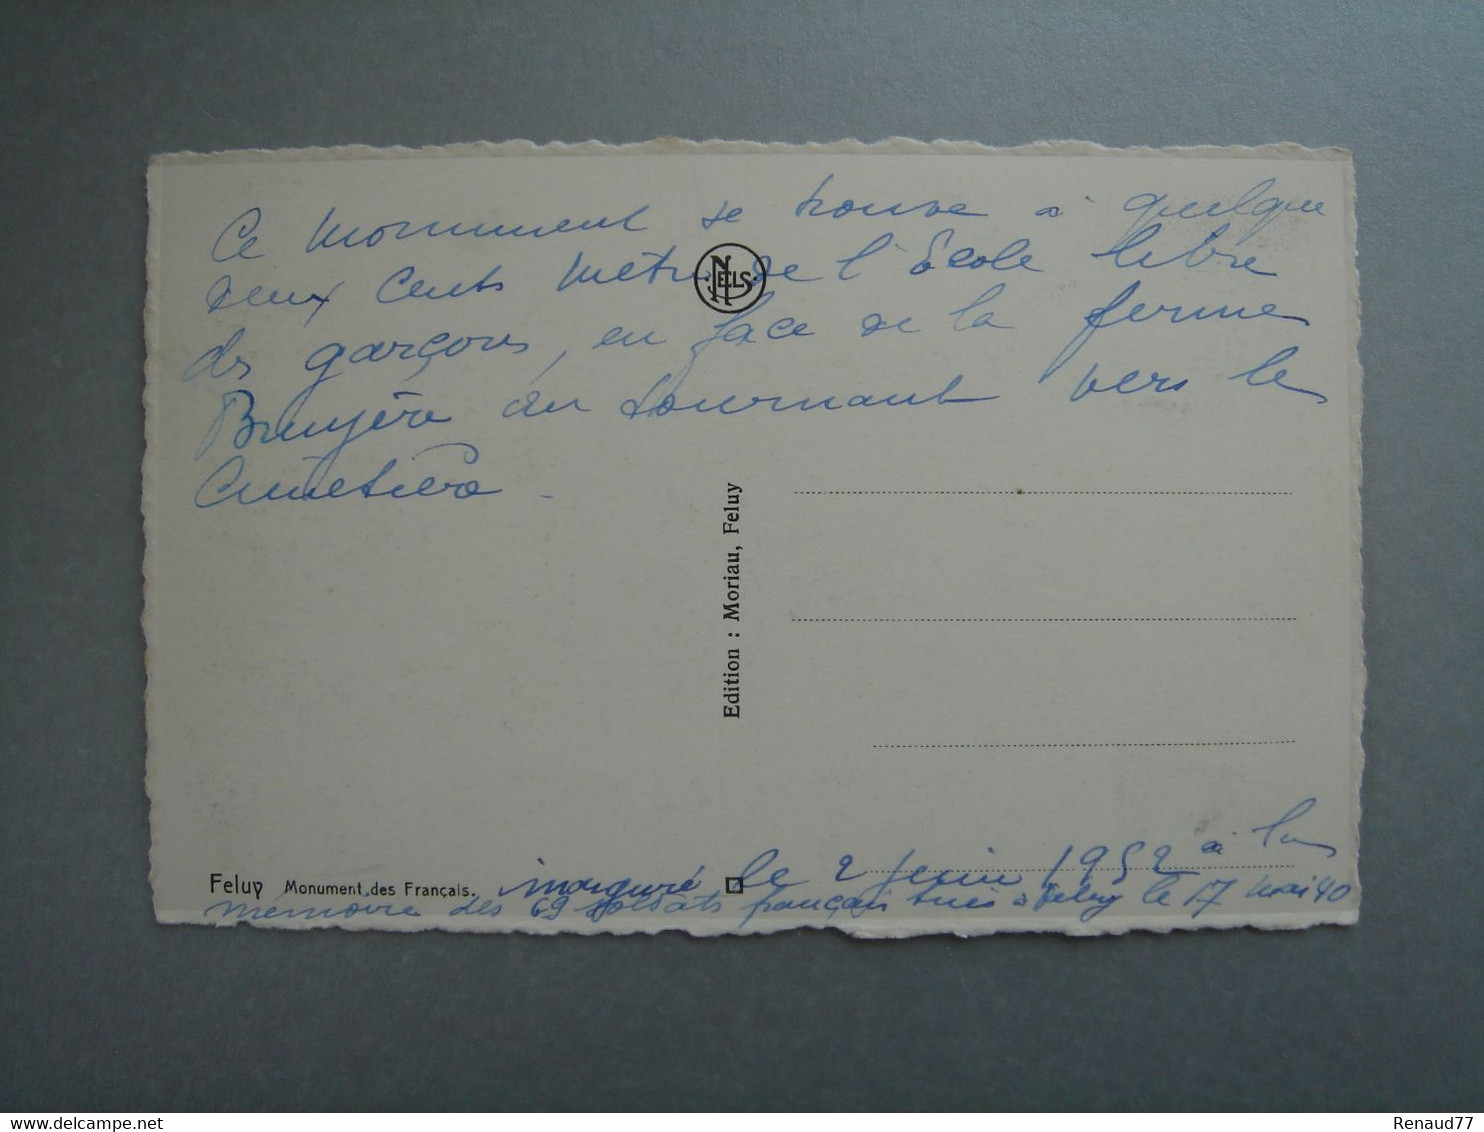 Ce monument se trouve à quelque
deux cents mètres de l'École libre
NELS
des garçons, en face de la ferme
Bruyère au tournant vers le
Cimetière -
Edition : Moriau, Feluy
Feluy Monument des Français. inauguré le 2 juin 1952 à la
mémoire des 69 soldats français tués à Feluy le 17 mai 40
Renaud77